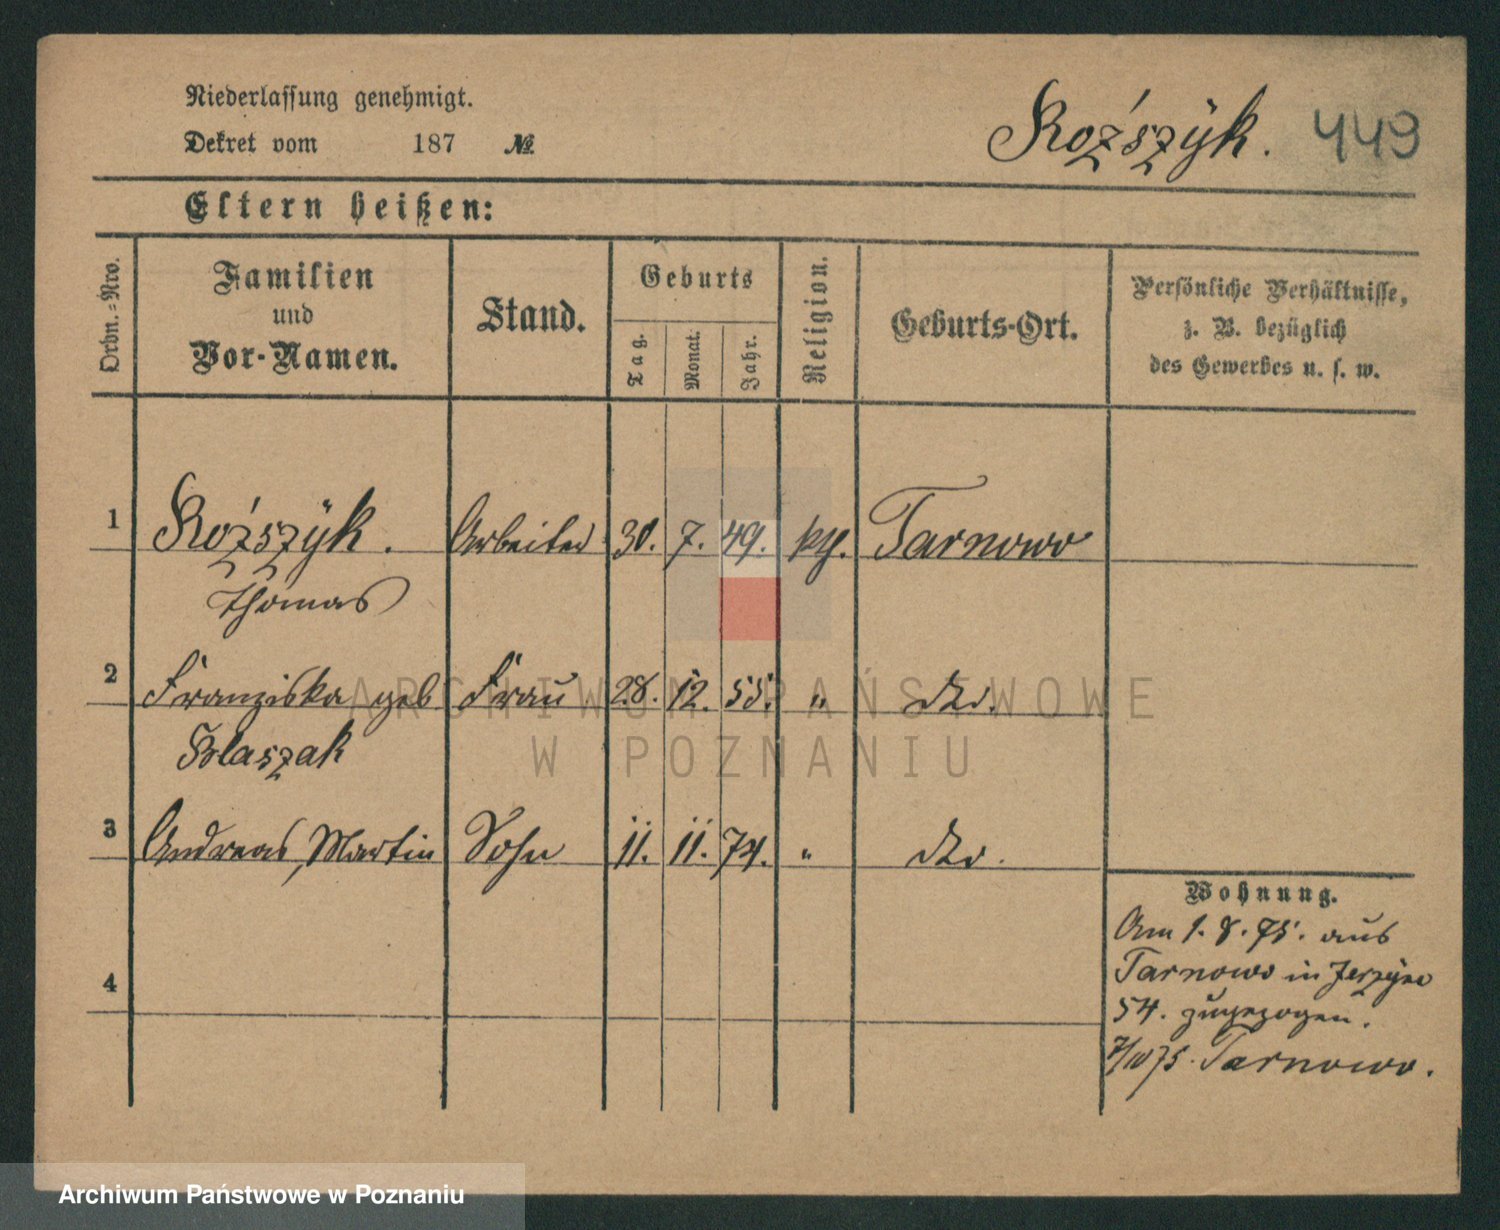 Niederlassung genehmigt.
Dekret vom 187 №
Roższÿk. 449
Eltern heißen:
Ordn.=Nro.
Familien
und
Vor-Namen.
Stand.
Geburts
Tag.
Monat.
Jahr.
Religion.
Geburts-Ort.
Persönliche Verhältnisse,
z. B. bezüglich
des Gewerbes u. s. w.
1 Roższÿk. Arbeiter 30. 7. 49. kth. Tarnowo
Thomas
2 Franziska geb Frau 28. 12. 55. " dto.
Blaszak
3 Andreas, Martin Sohn 11. 11. 74. " dto.
4
Wohnung.
Am 1. 8. 75. aus
Tarnowo in Jerzÿce
54. zugezogen.
75. Tarnowo.
ARCHIWUM PAŃSTWOWE
W POZNANIU
Archiwum Państwowe w Poznaniu